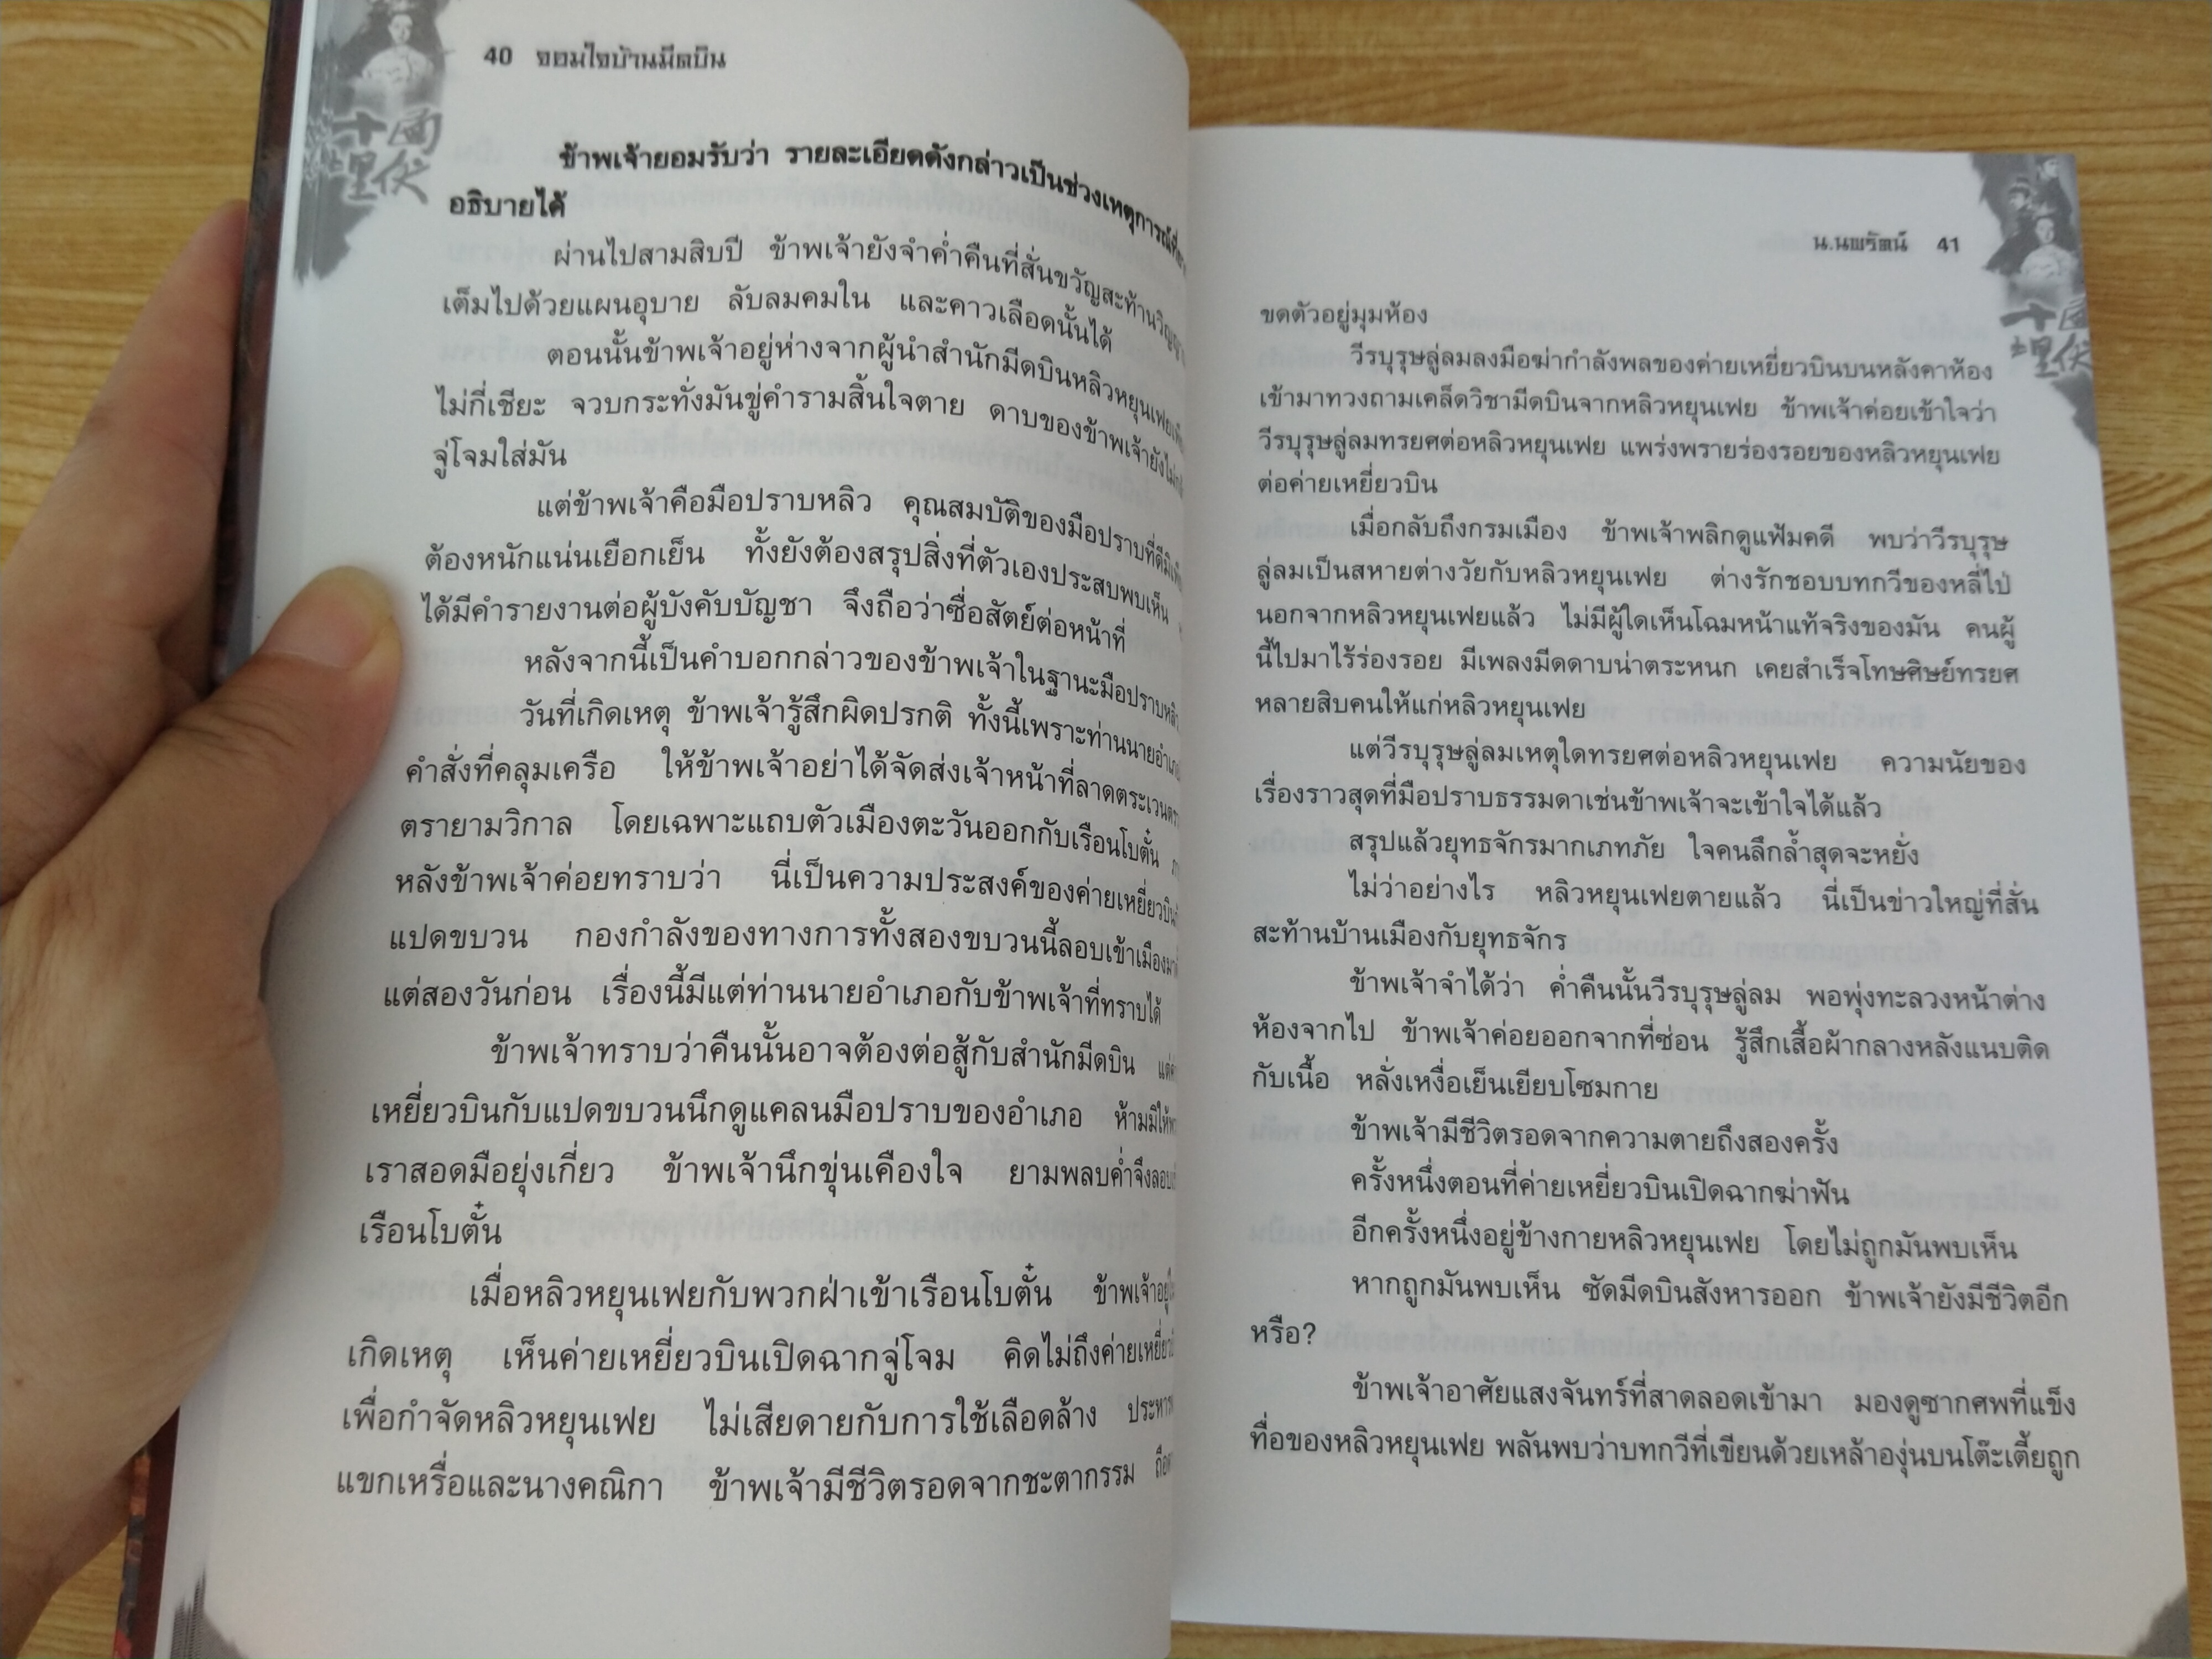 40 จอมใจบ้านมีดบิน
十面
埋伏
ข้าพเจ้ายอมรับว่า รายละเอียดดังกล่าวเป็นช่วงเหตุการณ์ที่
อธิบายได้
ผ่านไปสามสิบปี ข้าพเจ้ายังจำค่ำคืนที่สั่นขวัญสะท้านวิญญาณ
เต็มไปด้วยแผนอุบาย ลับลมคมใน และคาวเลือดนั้นได้
ตอนนั้นข้าพเจ้าอยู่ห่างจากผู้นำสำนักมีดบินหลิวหยุนเฟย
ไม่กี่เชียะ จวบกระทั่งมันขู่คำรามสิ้นใจตาย ดาบของข้าพเจ้ายังไม่
จู่โจมใส่มัน
แต่ข้าพเจ้าคือมือปราบหลิว คุณสมบัติของมือปราบที่ดีมิ
ต้องหนักแน่นเยือกเย็น ทั้งยังต้องสรุปสิ่งที่ตัวเองประสบพบเห็น
ได้มีคำรายงานต่อผู้บังคับบัญชา จึงถือว่าซื่อสัตย์ต่อหน้าที่
หลังจากนี้เป็นคำบอกกล่าวของข้าพเจ้าในฐานะมือปราบหลิว
วันที่เกิดเหตุ ข้าพเจ้ารู้สึกผิดปรกติ ทั้งนี้เพราะท่านนายอำเภอ
คำสั่งที่คลุมเครือ ให้ข้าพเจ้าอย่าได้จัดส่งเจ้าหน้าที่ลาดตระเวน
ตรายามวิกาล โดยเฉพาะแถบตัวเมืองตะวันออกกับเรือนโบตั๋น
หลังข้าพเจ้าค่อยทราบว่า นี่เป็นความประสงค์ของค่ายเหยี่ยวบิน
แปดขบวน กองกำลังของทางการทั้งสองขบวนนี้ลอบเข้าเมืองมา
แต่สองวันก่อน เรื่องนี้มีแต่ท่านนายอำเภอกับข้าพเจ้าที่ทราบได้
ข้าพเจ้าทราบว่าคืนนั้นอาจต้องต่อสู้กับสำนักมีดบิน
เหยี่ยวบินกับแปดขบวนนึกดูแคลนมือปราบของอำเภอ ห้ามมิให้
เราสอดมือยุ่งเกี่ยว ข้าพเจ้านึกขุ่นเคืองใจ ยามพลบค่ำจึงลอบ
เรือนโบตั๋น
เมื่อหลิวหยุนเฟยกับพวกฝ่าเข้าเรือนโบตั๋น ข้าพเจ้า
เกิดเหตุ เห็นค่ายเหยี่ยวบินเปิดฉากจู่โจม คิดไม่ถึงค่ายเหยี่ยว
เพื่อกำจัดหลิวหยุนเฟย ไม่เสียดายกับการใช้เลือดล้าง
แขกเหรื่อและนางคณิกา ข้าพเจ้ามีชีวิตรอดจากชะตากรรม
น.นพรัตน์ 41
十面
埋伏
ขดตัวอยู่มุมห้อง
วีรบุรุษลู่ลมลงมือฆ่ากำลังพลของค่ายเหยี่ยวบินบนหลังคาห้อง
เข้ามาทวงถามเคล็ดวิชามีดบินจากหลิวหยุนเฟย ข้าพเจ้าค่อยเข้าใจว่า
วีรบุรุษลู่ลมทรยศต่อหลิวหยุนเฟย แพร่งพรายร่องรอยของหลิวหยุนเฟย
ต่อค่ายเหยี่ยวบิน
เมื่อกลับถึงกรมเมือง ข้าพเจ้าพลิกดูแฟ้มคดี พบว่าวีรบุรุษ
ลู่ลมเป็นสหายต่างวัยกับหลิวหยุนเฟย ต่างรักชอบบทกวีของหลี่ไป๋
นอกจากหลิวหยุนเฟยแล้ว ไม่มีผู้ใดเห็นโฉมหน้าแท้จริงของมัน คนผู้
นี้ไปมาไร้ร่องรอย มีเพลงมีดดาบน่าตระหนก เคยสำเร็จโทษศิษย์ทรยศ
หลายสิบคนให้แก่หลิวหยุนเฟย
แต่วีรบุรุษลู่ลมเหตุใดทรยศต่อหลิวหยุนเฟย ความนัยของ
เรื่องราวสุดที่มือปราบธรรมดาเช่นข้าพเจ้าจะเข้าใจได้แล้ว
สรุปแล้วยุทธจักรมากเภทภัย ใจคนลึกล้ำสุดจะหยั่ง
ไม่ว่าอย่างไร หลิวหยุนเฟยตายแล้ว นี่เป็นข่าวใหญ่ที่สั่น
สะท้านบ้านเมืองกับยุทธจักร
ข้าพเจ้าจำได้ว่า ค่ำคืนนั้นวีรบุรุษลู่ลม พอพุ่งทะลวงหน้าต่าง
ห้องจากไป ข้าพเจ้าค่อยออกจากที่ซ่อน รู้สึกเสื้อผ้ากลางหลังแนบติด
กับเนื้อ หลั่งเหงื่อเย็นเยียบโซมกาย
ข้าพเจ้ามีชีวิตรอดจากความตายถึงสองครั้ง
ครั้งหนึ่งตอนที่ค่ายเหยี่ยวบินเปิดฉากฆ่าฟัน
อีกครั้งหนึ่งอยู่ข้างกายหลิวหยุนเฟย โดยไม่ถูกมันพบเห็น
หากถูกมันพบเห็น ซัดมีดบินสังหารออก ข้าพเจ้ายังมีชีวิตอีก
หรือ?
ข้าพเจ้าอาศัยแสงจันทร์ที่สาดลอดเข้ามา มองดูซากศพที่แข็ง
ทื่อของหลิวหยุนเฟย พลันพบว่าบทกวีที่เขียนด้วยเหล้าองุ่นบนโต๊ะเตี้ยถูก